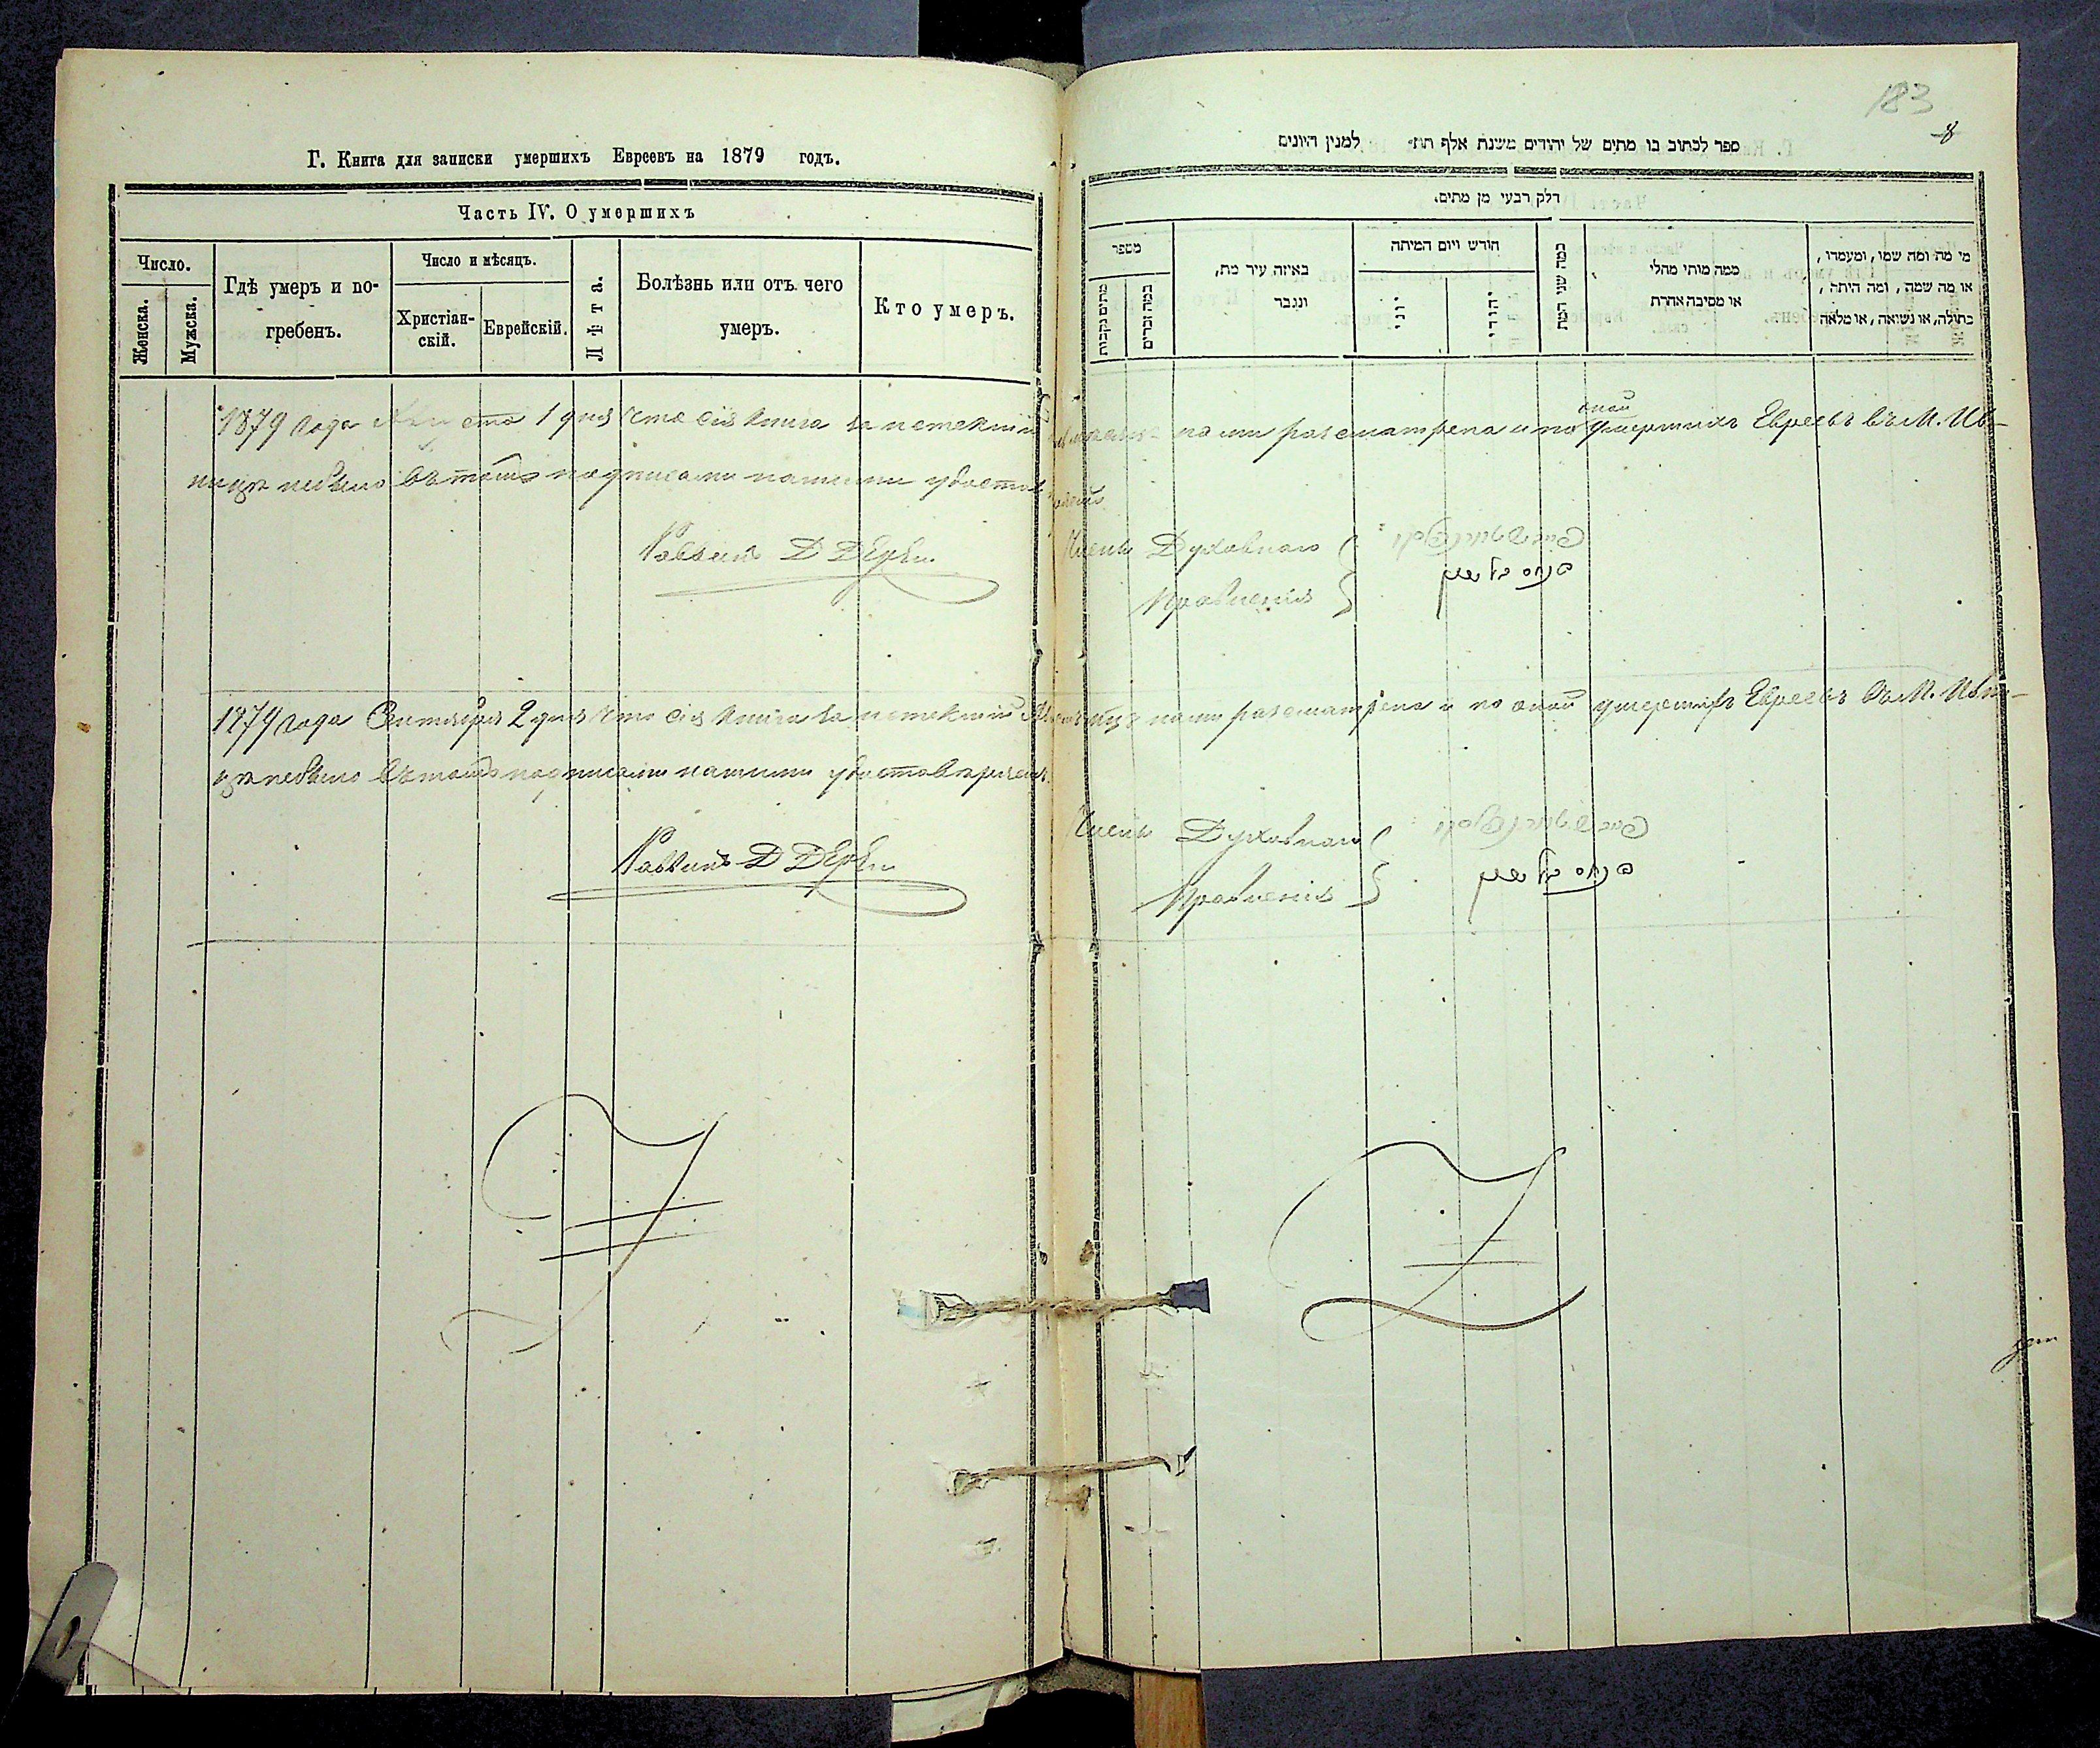 183
8
Г. Книга для записки умершихъ Евреевъ на 1879 годъ.
Часть IV. О умершихъ
Число.
Женска.
Мужска.
Гдѣ умеръ и по-
гребенъ.
Число и мѣсяцъ.
Христіан-
скій.
Еврейскій.
Лѣта.
Болѣзнь или отъ чего
умеръ.
Кто умеръ.
ספר לכתוב בו מתים של יהודים משנת אלף תת״ למנין היונים
חלק רבעי מן מתים.
מספר
מתים נקבות
כמה זכרים
באיזה עיר מת,
ונגבר
חודש ויום המיתה
יוני
יהודי
כמה שני המת
כמה מותי מחלי
או מסיבה אחרת
מי מת ומה שמו, ומעמדו,
או מה שמה, ומה היתה,
בתולה, או נשואה, או מלאה
1879 года Августа 1 дня что сія книга за истекшій нами разсматрена и по оной умершихъ Евреевъ въ М. Ив-
ницѣ небыло въ томъ подписами нашими удостов
Раввинъ Д
Членъ Духовнаго
Правленія
1879 года Сентября 2 дня что сія книга за истекшій нами разсматрена и по оной умершихъ Евреевъ въ М. Ивн-
ицѣ небыло въ томъ подписами нашими удостовѣряемъ
Раввинъ Д
Членъ Духовнаго
Правленія